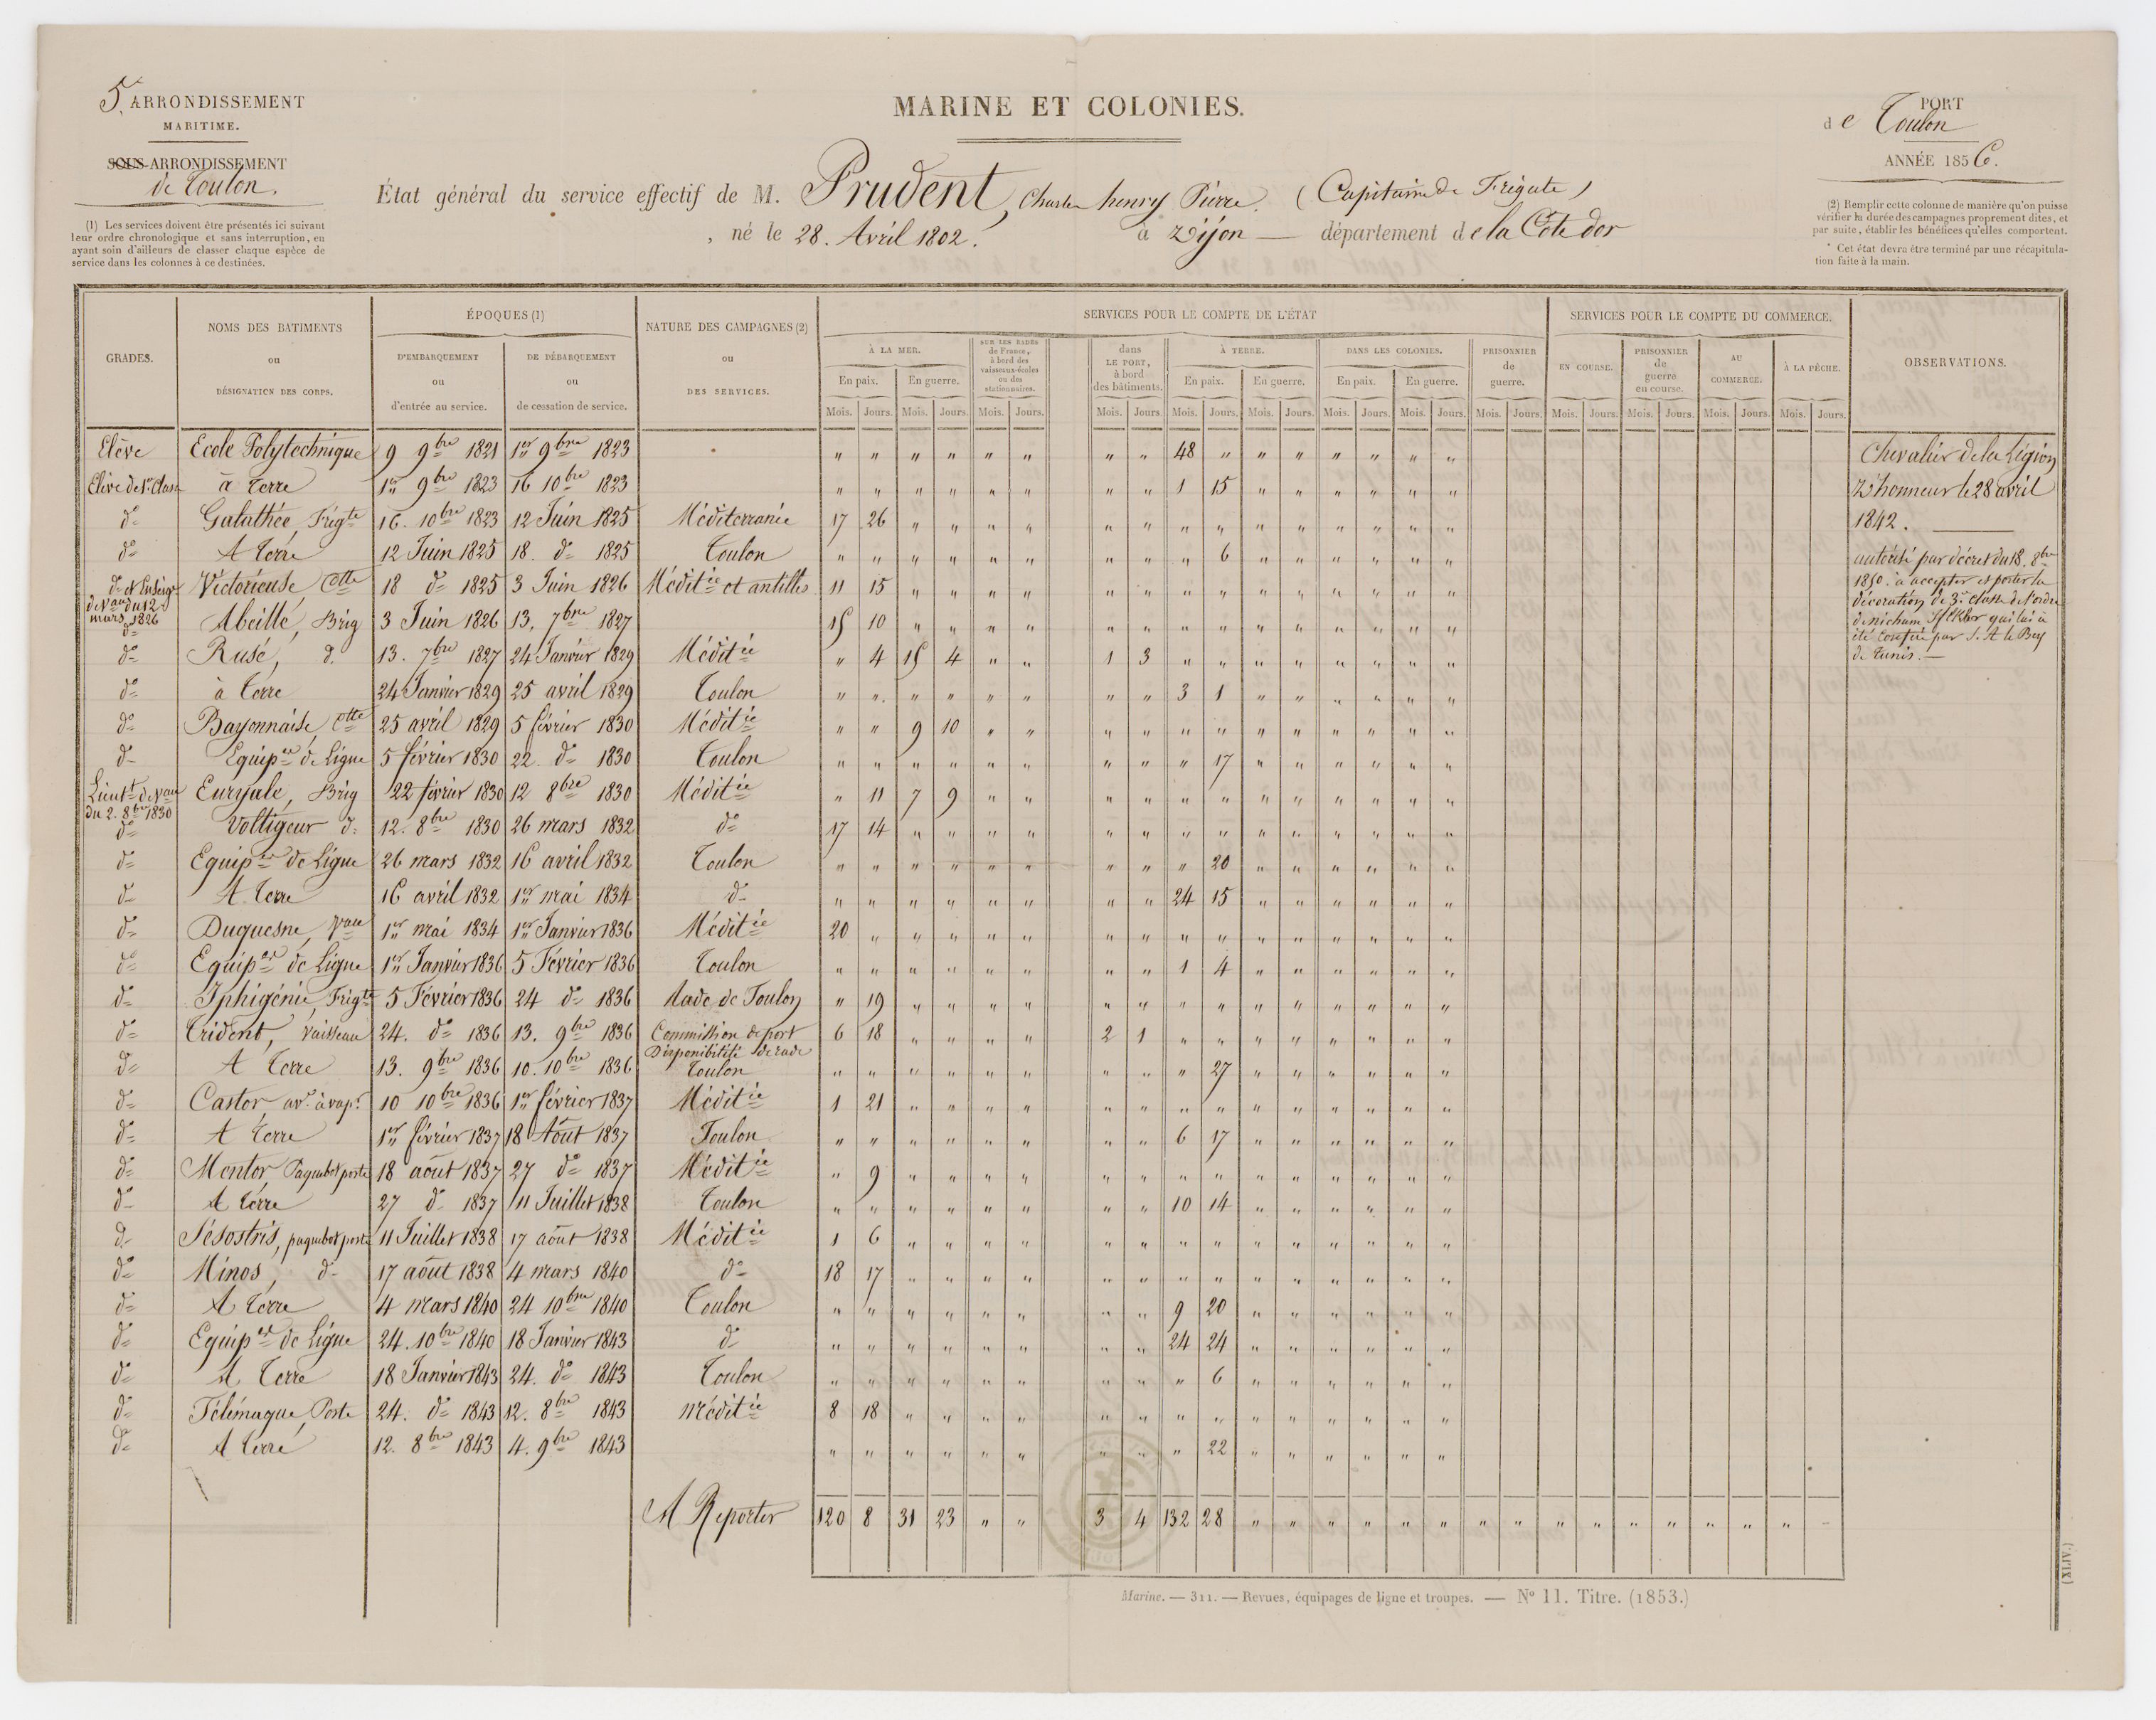 5e ARRONDISSEMENT
MARITIME.
SOUS-ARRONDISSEMENT
de Toulon.
(1) Les services doivent être présentés ici suivant
leur ordre chronologique et sans interruption, en
ayant soin d'ailleurs de classer chaque espèce de
service dans les colonnes à ce destinées.
MARINE ET COLONIES.
État général du service effectif de M. Prudent, Charles henry Pierre. (Capitaine de Frégate)
, né le 28. Avril 1802. à Dijon — département de la Côte dor
PORT
de Toulon
ANNÉE 1856.
(2) Remplir cette colonne de manière qu'on puisse
vérifier la durée des campagnes proprement dites, et
par suite, établir les bénéfices qu'elles comportent.
* Cet état devra être terminé par une récapitula-
tion faite à la main.
GRADES.
NOMS DES BATIMENTS
ou
DÉSIGNATION DES CORPS.
ÉPOQUES (1)
D'EMBARQUEMENT
ou
d'entrée au service.
DE DÉBARQUEMENT
ou
de cessation de service.
NATURE DES CAMPAGNES (2)
ou
DES SERVICES.
SERVICES POUR LE COMPTE DE L'ÉTAT
À LA MER.
En paix. En guerre.
SUR LES RADES
de France,
à bord des
vaisseaux-écoles
ou des
stationnaires.
dans
LE PORT,
à bord
des bâtiments.
À TERRE.
En paix. En guerre.
DANS LES COLONIES.
En paix. En guerre.
PRISONNIER
de
guerre.
SERVICES POUR LE COMPTE DU COMMERCE.
EN COURSE.
PRISONNIER
de
guerre
en course.
AU
COMMERCE.
À LA PÊCHE.
OBSERVATIONS.
Mois. Jours. Mois. Jours. Mois. Jours. Mois. Jours. Mois. Jours. Mois. Jours. Mois. Jours. Mois. Jours. Mois. Jours. Mois. Jours. Mois. Jours. Mois. Jours. Mois. Jours.
Elève Ecole Polytechnique 9 9bre 1821 1er 9bre 1823 " " " " " " " " 48 " " " " " " "
Elève de 1re Classe à Terre 1er 9bre 1823 16 10bre 1823 " " " " " " " " 1 15 " " " " " "
do Galathée, Frégte 16. 10bre 1823 12 Juin 1825 Méditerranée 17 26 " " " " " " " " " " " " " "
do A Terre 12 Juin 1825 18. do 1825 Toulon " " " " " " " " " 6 " " " " " "
do et Enseigne Victorieuse, Ctte 18 do 1825 3 Juin 1826 Méditie et antilles 11 15 " " " " " " " " " " " " " "
de Vau du 12
mars 1826
do Abeille, Brig 3 Juin 1826 13. 7bre 1827 15 10 " " " " " " " " " " " " " "
do Rusé, do 13. 7bre 1827 24 Janvier 1829 Méditie " 4 15 4 " " 1 3 " " " " " " " "
do à Terre 24 Janvier 1829 25 avril 1829 Toulon " " " " " " " " 3 1 " " " " " "
do Bayonnaise, Ctte 25 avril 1829 5 février 1830 Méditie " " 9 10 " " " " " " " " " " " "
do Equipes de Ligne 5 février 1830 22. do 1830 Toulon " " " " " " " " " 17 " " " " " "
Lieut. de Vau Euryale, Brig 22 février 1830 12 8bre 1830 Méditie " 11 7 9 " " " " " " " " " " " "
du 2. 8bre 1830
do Voltigeur do 12. 8bre 1830 26 mars 1832 do 17 14 " " " " " " " " " " " " " "
do Equipes de Ligne 26 mars 1832 16 avril 1832 Toulon " " " " " " " " " 20 " " " " " "
do A Terre 16 avril 1832 1er mai 1834 do " " " " " " " " 24 15 " " " " " "
do Duquesne, Vau 1er mai 1834 1er Janvier 1836 Méditie 20 " " " " " " " " " " " " " " "
do Equipes de Ligne 1er Janvier 1836 5 Février 1836 Toulon " " " " " " " " 1 4 " " " " " "
do Iphigénie, Frigte 5 Février 1836 24 do 1836 Rade de Toulon " 19 " " " " " " " " " " " " " "
do Trident, Vaisseau 24. do 1836 13. 9bre 1836 Commission de port 6 18 " " " " 2 1 " " " " " " " "
Disponibilité de rade
do A Terre 13. 9bre 1836 10. 10bre 1836 Toulon " " " " " " " " " 27 " " " " " "
do Castor, avo. à vapr. 10 10bre 1836 1er février 1837 Méditie 1 21 " " " " " " " " " " " " " "
do A Terre 1er février 1837 18 Août 1837 Toulon " " " " " " " " 6 17 " " " " " "
do Mentor, Paquebot poste 18 août 1837 27 do 1837 Méditie " 9 " " " " " " " " " " " " " "
do A Terre 27 do 1837 11 Juillet 1838 Toulon " " " " " " " " 10 14 " " " " " "
do Sésostris, paquebot poste 11 Juillet 1838 17 août 1838 Méditie 1 6 " " " " " " " " " " " " " "
do Minos, do 17 août 1838 4 mars 1840 do 18 17 " " " " " " " " " " " " " "
do A Terre 4 mars 1840 24 10bre 1840 Toulon " " " " " " " " 9 20 " " " " " "
do Equipes de Ligne 24. 10bre 1840 18 Janvier 1843 do " " " " " " " " 24 24 " " " " " "
do A Terre 18 Janvier 1843 24. do 1843 Toulon " " " " " " " " " 6 " " " " " "
do Télémaque, Poste 24. do 1843 12. 8bre 1843 Méditie 8 18 " " " " " " " " " " " " " "
do A Terre 12. 8bre 1843 4. 9bre 1843 " " " " " " " " " 22 " " " " " "
A Reporter 120 8 31 23 " " 3 4 132 28 " " " " " " " " " " " " " " " "
Chevalier de la Légion
D'honneur le 28 avril
1842.
autorisé par décret du 18. 8bre
1850. à accepter et porter la
décoration de 3e classe de l'ordre
de nichum Iftkhar qui lui a
été conférée par S. A le Bey
de Tunis. —
Marine. — 311. — Revues, équipages de ligne et troupes. — No 11. Titre. (1853.)